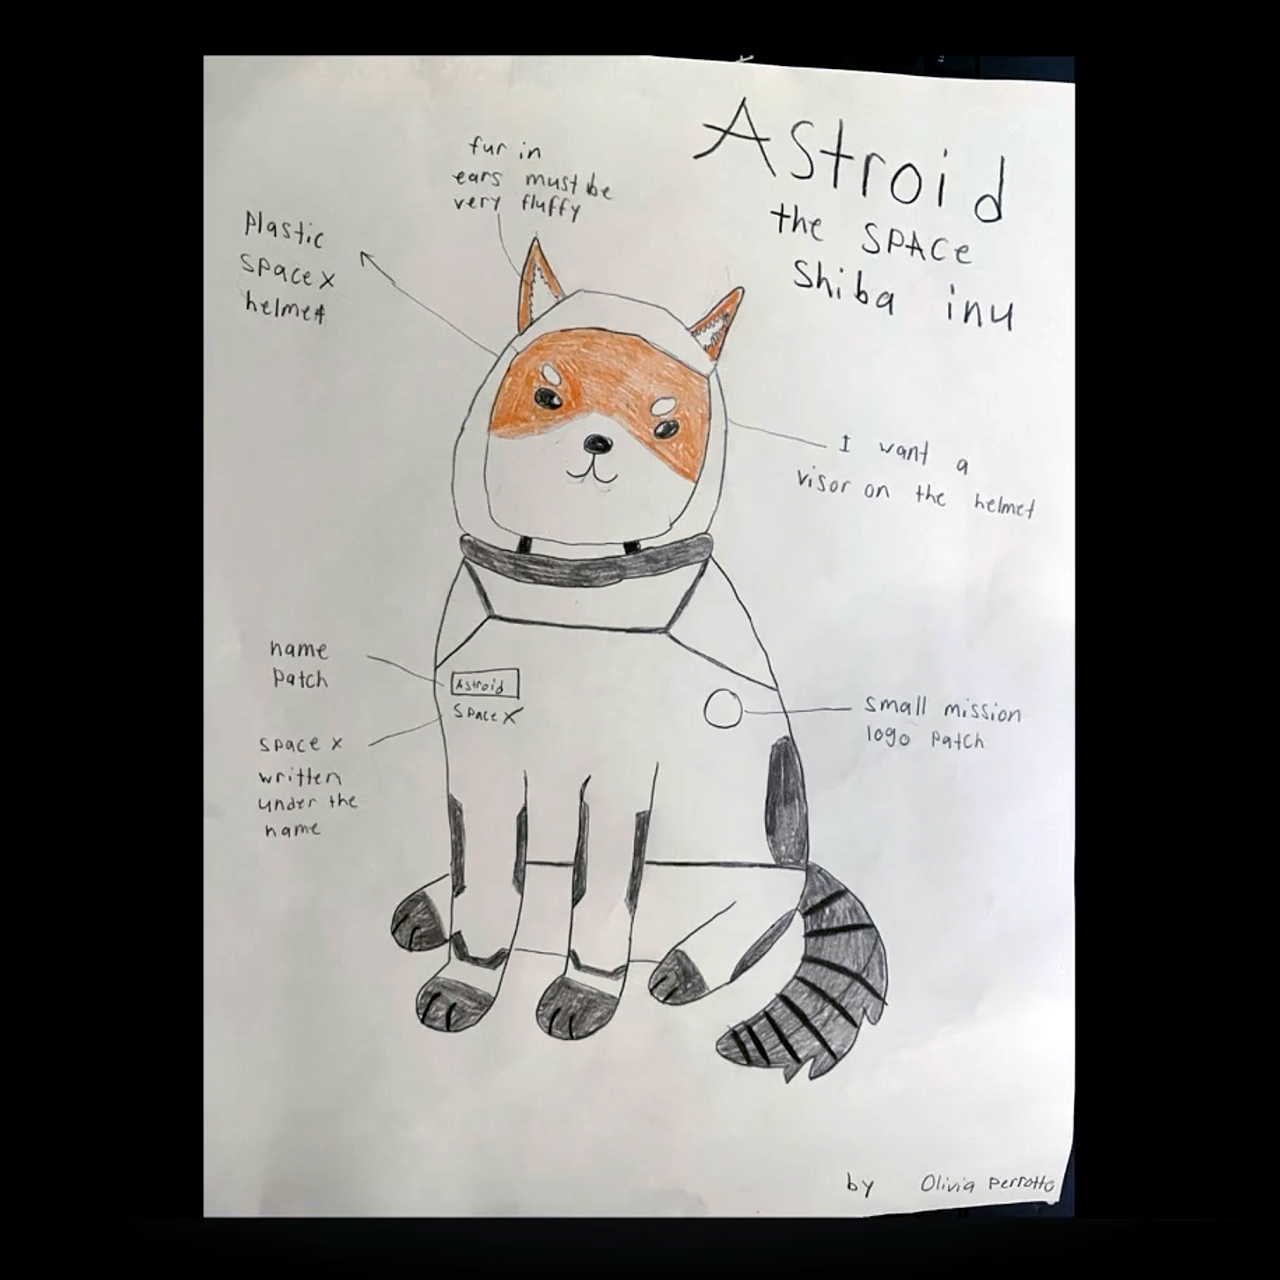 Astroid
the SPACe
Shiba inu
fur in
ears must be
very fluffy
Plastic
Space x
helmet
I want a
visor on the helmet
name
Patch
Astroid
SPaceX
Space x
written
under the
name
small mission
logo Patch
by Olivia Perrotto